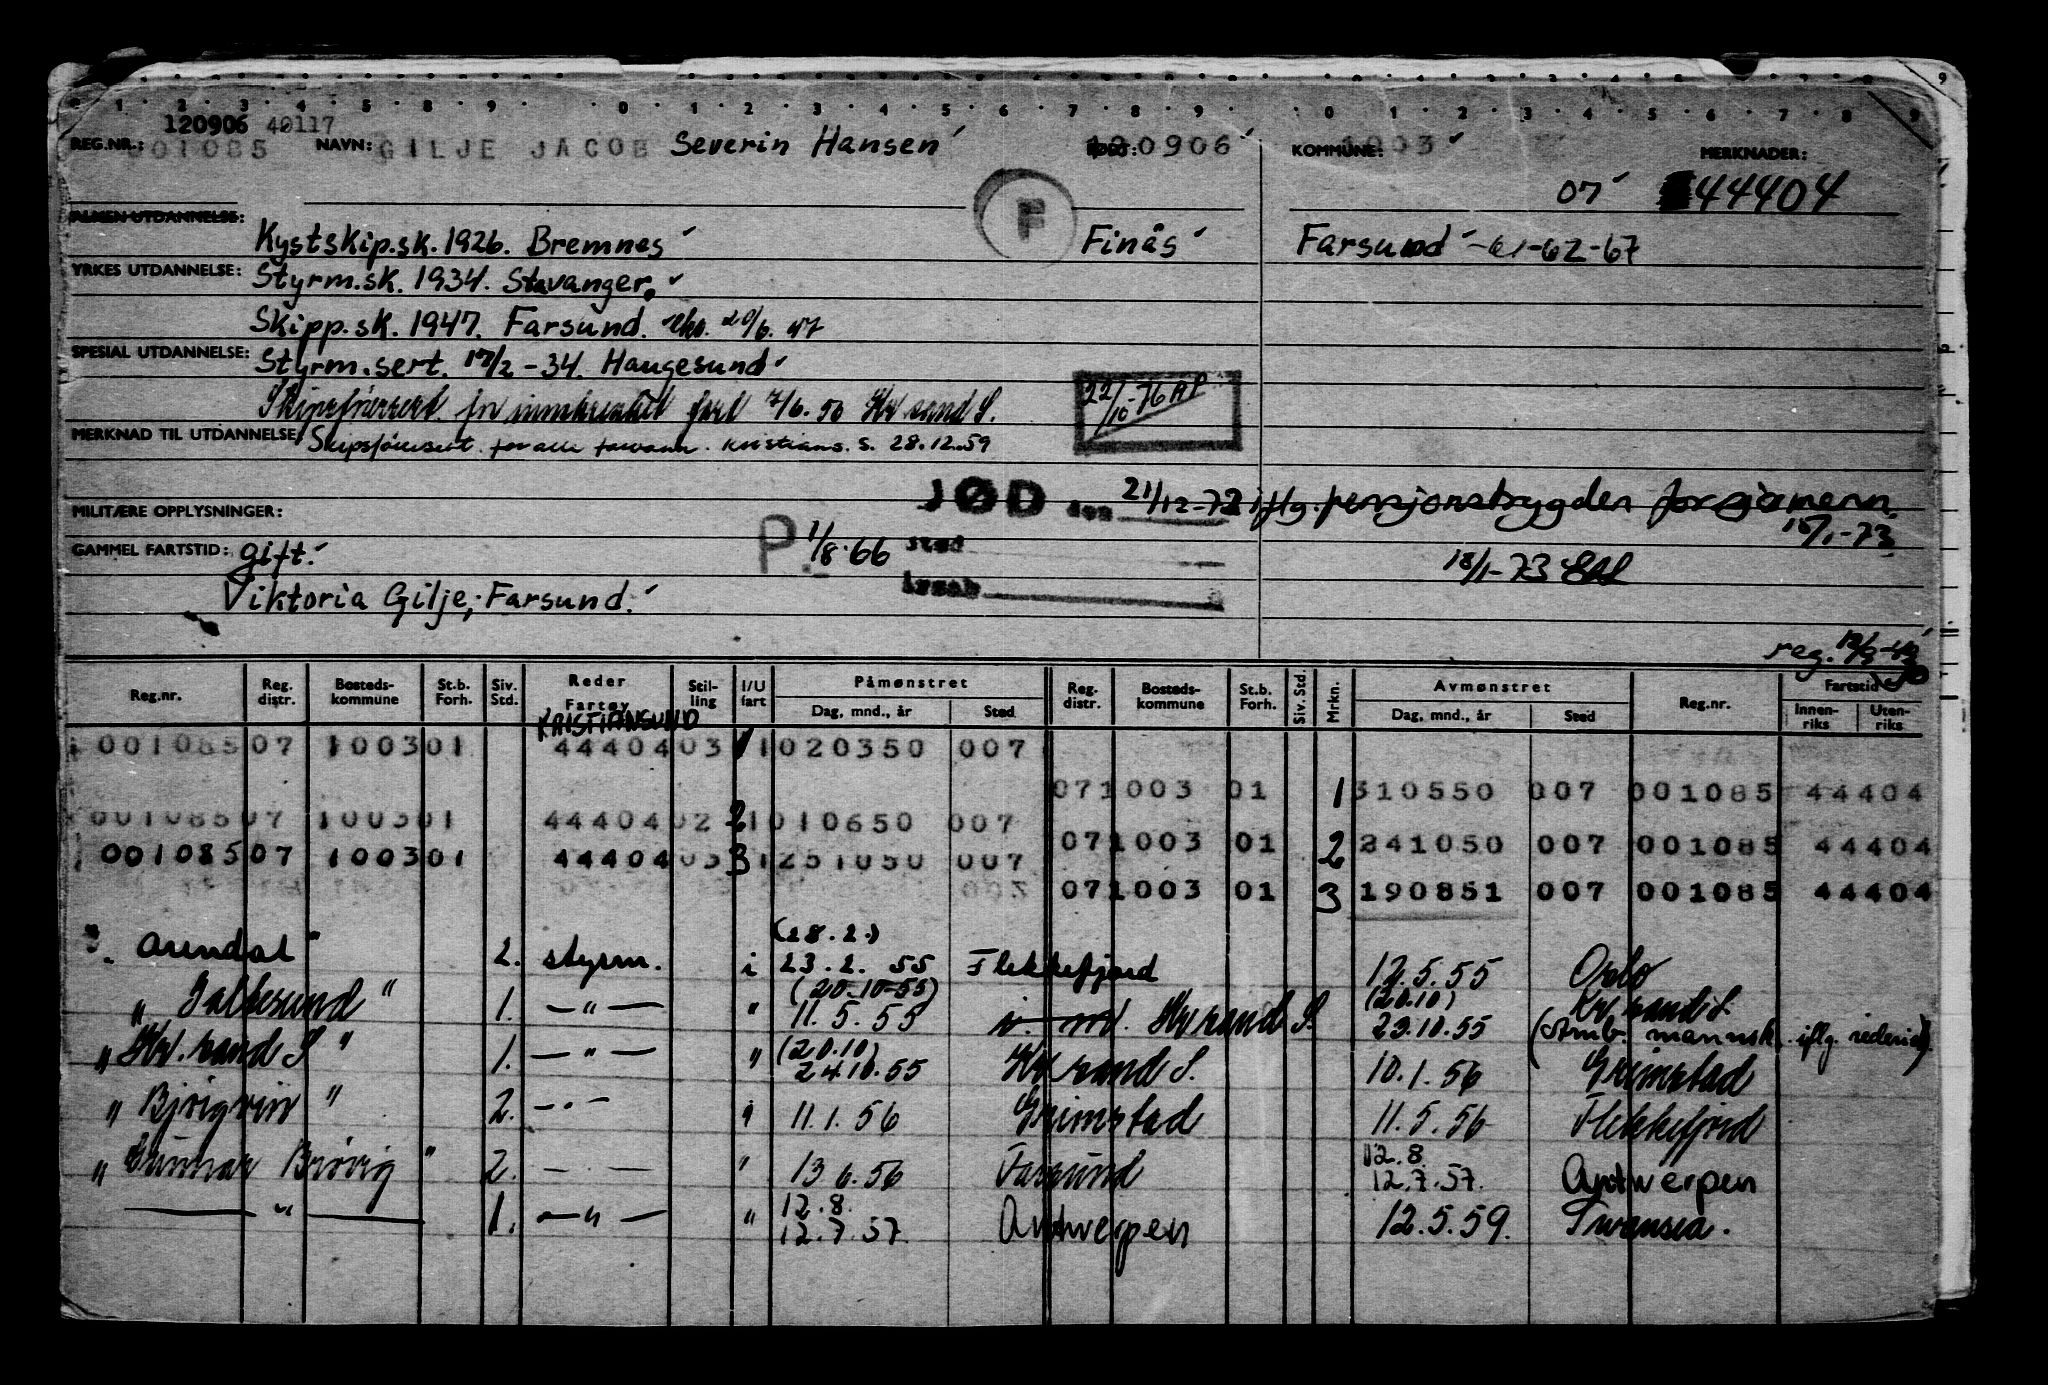 0 1 2 3 4 5 8 9 0 1 2 3 4 5 6 7 8 9 0 1 2 3 4 5 6 7 8 9
120906 40117
REG.NR.: 001085 NAVN: GILJE JACOB Severin Hansen 120906 KOMMUNE: 1003 MERKNADER:
07 44404
ALMEN UTDANNELSE: Kystskip.sk. 1926. Bremnes F Finås Farsund -61-62-67
YRKES UTDANNELSE: Styrm.sk. 1934. Stavanger.
Skipp.sk. 1947. Farsund. 20/6. 47
SPESIAL UTDANNELSE: Styrm.sert. 17/2 - 34. Haugesund
for fart 7/6. 50 Kr sand S. 22/10-76
MERKNAD TIL UTDANNELSE: Skipsførersert. for alle farvann. Kristians. S. 28.12.59
DØD den 21/12-72 iflg. pensjonstrygden for sjømenn.
MILITÆRE OPPLYSNINGER: 18/1-73
P. 1/8-66 sted
GAMMEL FARTSTID: gift. 18/1-73
Viktoria Gilje, Farsund.
reg.
Reg.nr. Reg. distr. Bosteds-kommune St.b. Forh. Siv. Std. Reder Fartøy Stil-ling I/U fart Påmønstret Dag, mnd., år Sted Reg. distr. Bosteds-kommune St.b. Forh. Siv. Std. Mrkn. Avmønstret Dag, mnd., år Sted Reg.nr. Fartstid Innen-riks Uten-riks
KRISTIANSUND
001085 07 1003 01 44404 03 1 1 020350 007
07 1003 01 1 310550 007 001085 44404
001085 07 1003 01 44404 02 2 1 010650 007
07 1003 01 2 241050 007 001085 44404
001085 07 1003 01 44404 03 3 1 251050 007
07 1003 01 3 190851 007 001085 44404
(28.2.)
Arendal" 2. styrm. i 23.2. 55 Flekkefjord 12.5.55 Oslo
(20.10-55) (20.10) Kr.sand S.
" Galtesund " 1. — " — " 11.5.55 Kr sand S. 23.10.55 (Amb. mannsk. iflg. rederiet).
(20.10)
" Kr. sand S " 1. — " — " 24.10.55 Kr sand S. 10.1.56 Grimstad
" Bjørgvin " 2. — " — i 11.1.56 Grimstad 11.5.56 Flekkefjord
12.8
" Gunnar Brøvig " 2. — " — " 13 6.56 Farsund 12.7.57. Antwerpen
12.8.
— " — 1. — " — " 12.7.57. Antwerpen 12.5.59. Swansea.